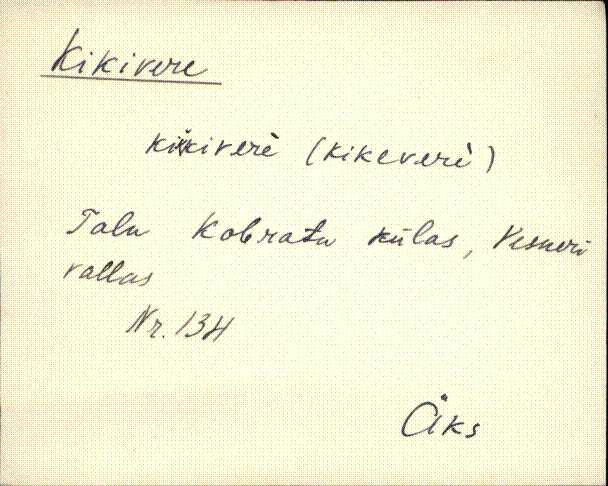 Kikivere
kikiverè (kikeverè)
Talu Kobratu külas, Vesneri
vallas
Nr. 134
Äks